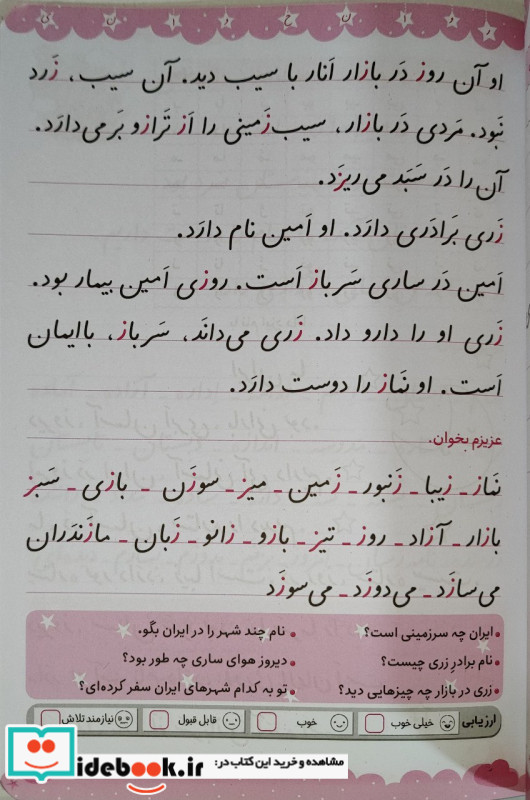 او آن روز دَر بازار اَنار با سیب دید. آن سیب، زَرد
نَبود. مَردی دَر بازار، سیب‌زَمینی را اَز تَرازو بَر می‌دارَد.
آن را دَر سَبَد می‌ریزَد.
زَری بَرادَری دارَد. او اَمین نام دارَد.
اَمین دَر ساری سَرباز اَست. روزی اَمین بیمار بود.
زَری او را دارو داد. زَری می‌دانَد، سَرباز، باایمان
اَست. او نَماز را دوست دارَد.
عزیزم بخوان.
نَماز - زیبا - زَنبور - زَمین - میز - سوزَن - بازی - سَبز
بازار - آزاد - روز - تیز - بازو - زانو - زَبان - مازَندَران
می‌سازَد - می‌دوزَد - می‌سوزَد
• ایران چه سرزمینی است؟ • نام چند شهر را در ایران بگو.
• نام برادرِ زری چیست؟ • دیروز هوای ساری چه طور بود؟
• زری در بازار چه چیزهایی دید؟ • تو به کدام شهرهای ایران سفر کرده‌ای؟
ارزیابی خیلی خوب خوب قابل قبول نیازمند تلاش
مشاهده و خرید این کتاب در:
idebook.ir